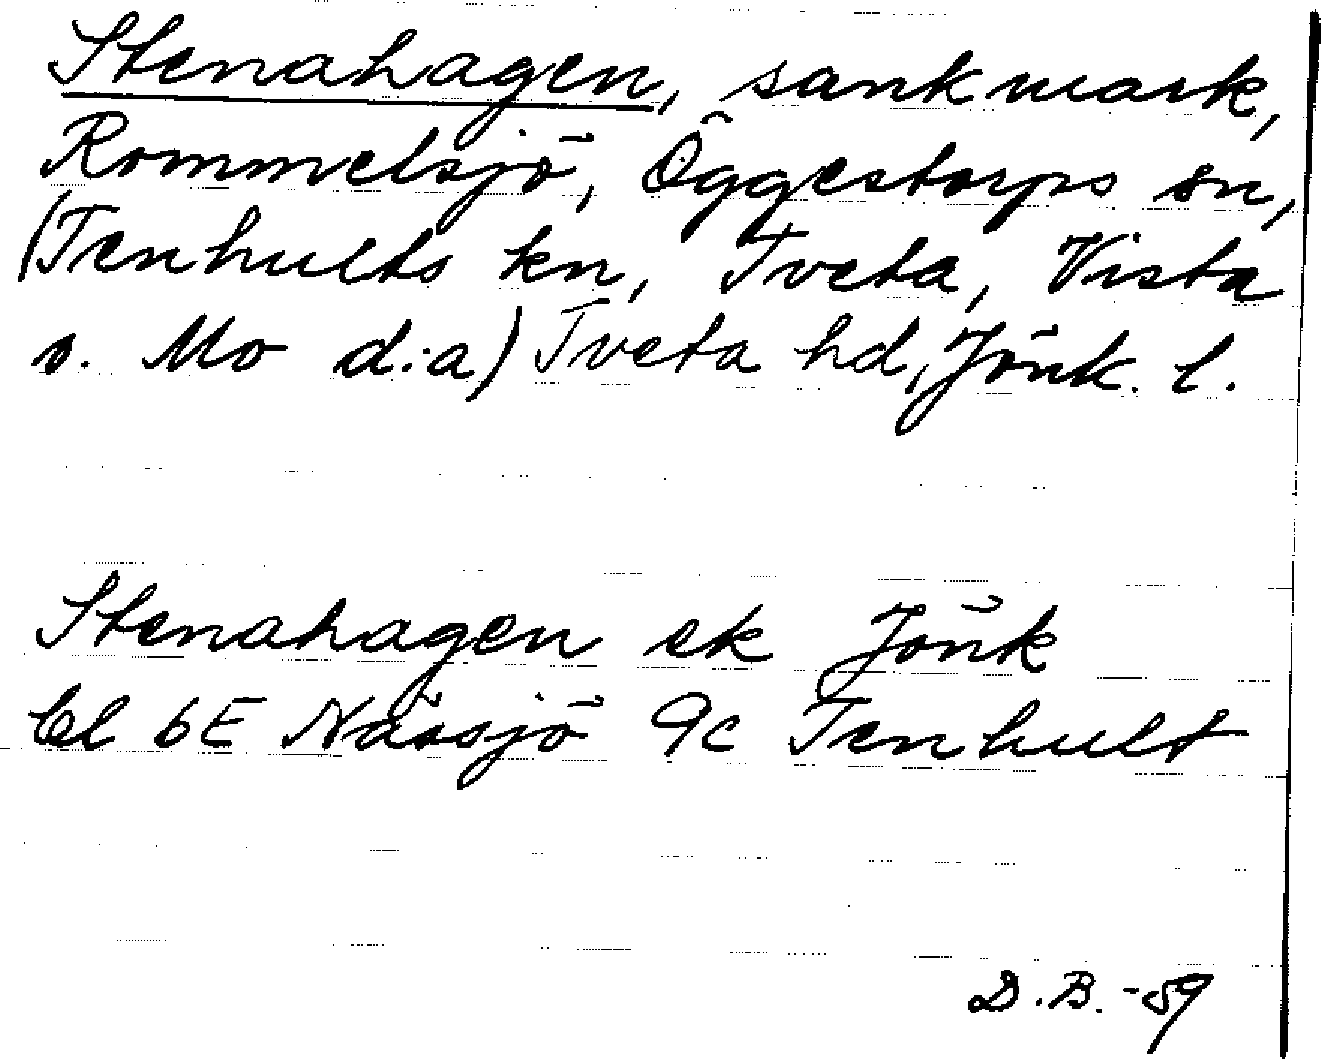 Stenahagen, sankmark,
Rommelsjö, Öggestorps sn,
(Tenhults kn, Tveta, Vista
o. Mo d:a) Tveta hd, Jönk. l.
Stenahagen ek Jönk
bl 6E Nässjö 9c Tenhult
D.B. -59